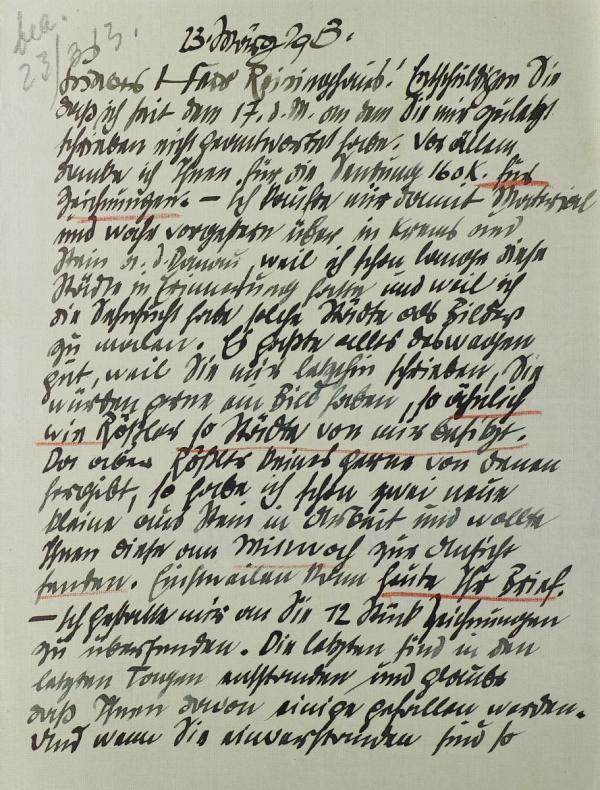 bea.
23/3 13.
23. März 1913.
Lieber Herr Reininghaus! Entschuldigen Sie
daß ich seit dem 17. d. M. an dem Sie mir zuletzt
schrieben nicht geantwortet habe. Vor allem
danke ich Ihnen für die Sendung 160 K. für
Zeichnungen. – Ich kaufte mir damit Material
und wahr vorgestern über in Krems und
Stein a. d. Donau, weil ich schon lange diese
Städte in Erinnerung hatte und weil ich
die Sehnsucht habe solche Städte als Bilder
zu malen. Es paßte alles deswegen
gut, weil Sie mir letzthin schrieben, Sie
würden gerne ein Bild haben, so ähnlich
wie Rößler so Städte von mir besitzt.
Da aber Rößler keines gerne von denen
hergibt, so habe ich schon zwei neue
kleine aus Stein in Arbeit und wollte
Ihnen diese am Mittwoch zur Ansicht
senden. Einstweilen kam heute Ihr Brief.
– Ich gestatte mir an Sie 12 Stück Zeichnungen
zu übersenden. Die letzten sind in den
letzten Tagen entstanden und glaube
daß Ihnen davon einige gefallen werden.
Und wenn Sie einverstanden sind so